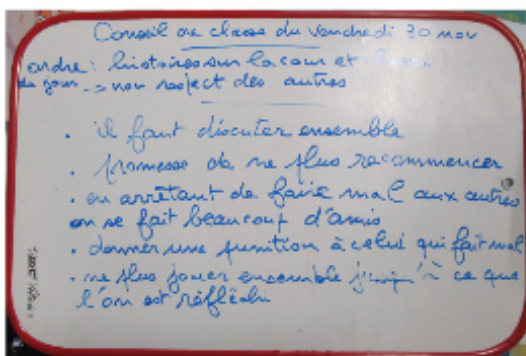 Conseil de classe du vendredi 30 nov
ordre : histoires sur la cour et
du jour -> non respect des autres
. il faut discuter ensemble
. promesse de ne plus recommencer
. en arrêtant de faire mal aux autres
on se fait beaucoup d'amis
. donner une punition à celui qui fait mal
. ne plus jouer ensemble jusqu'à ce que
l'on est réfléchi